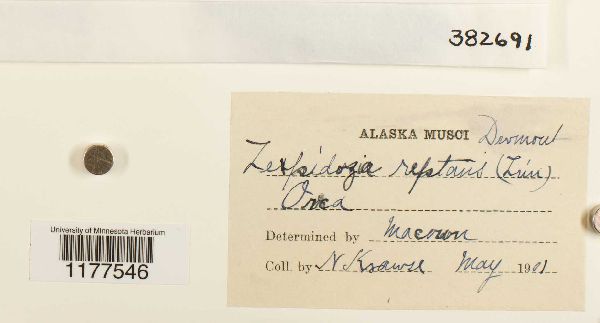 382691
ALASKA MUSCI
Lepidozia reptans (Lin)
Orca
Determined by Macoun
Coll. by N Krause May 1901
University of Minnesota Herbarium
1177546